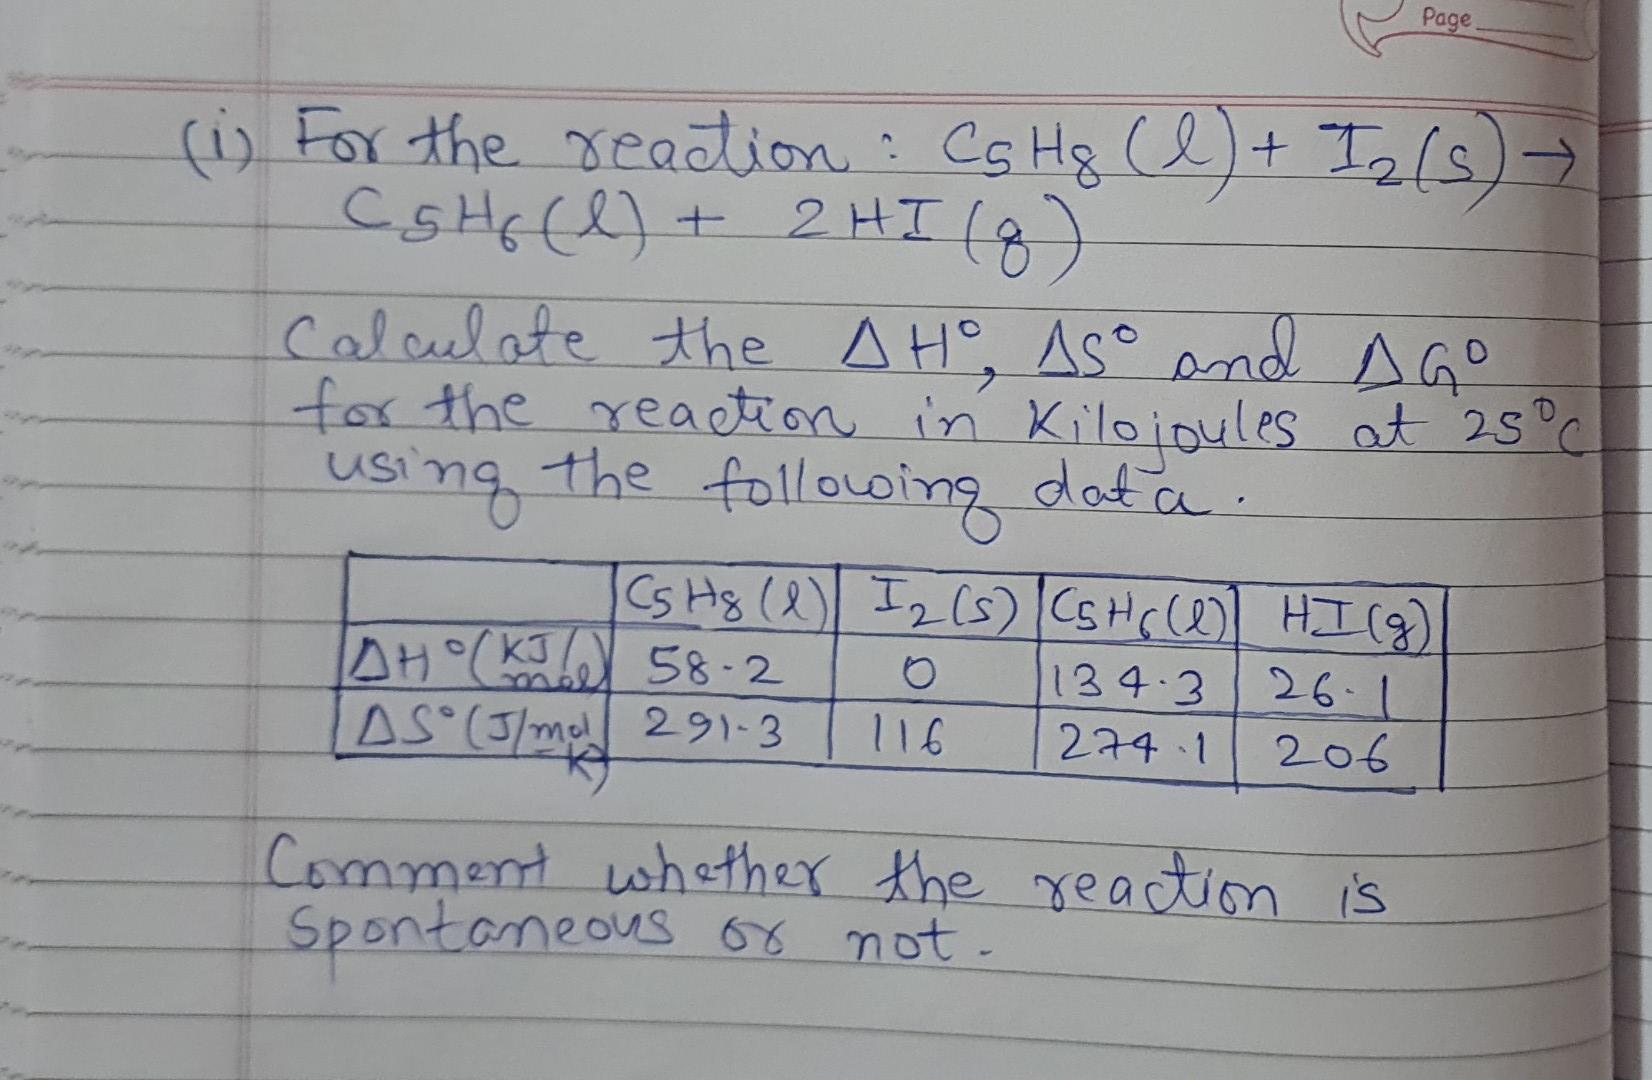 Page
(i) For the reaction : C5H8 (l) + I2 (s) →
C5H6 (l) + 2HI (g)
Calculate the ΔH°, ΔS° and ΔG°
for the reaction in Kilojoules at 25°C
using the following data.
C5H8 (l) I2 (s) C5H6 (l) HI (g)
ΔH° (KJ/mole) 58.2 0 134.3 26.1
ΔS° (J/mol K) 291.3 116 274.1 206
Comment whether the reaction is
Spontaneous or not.